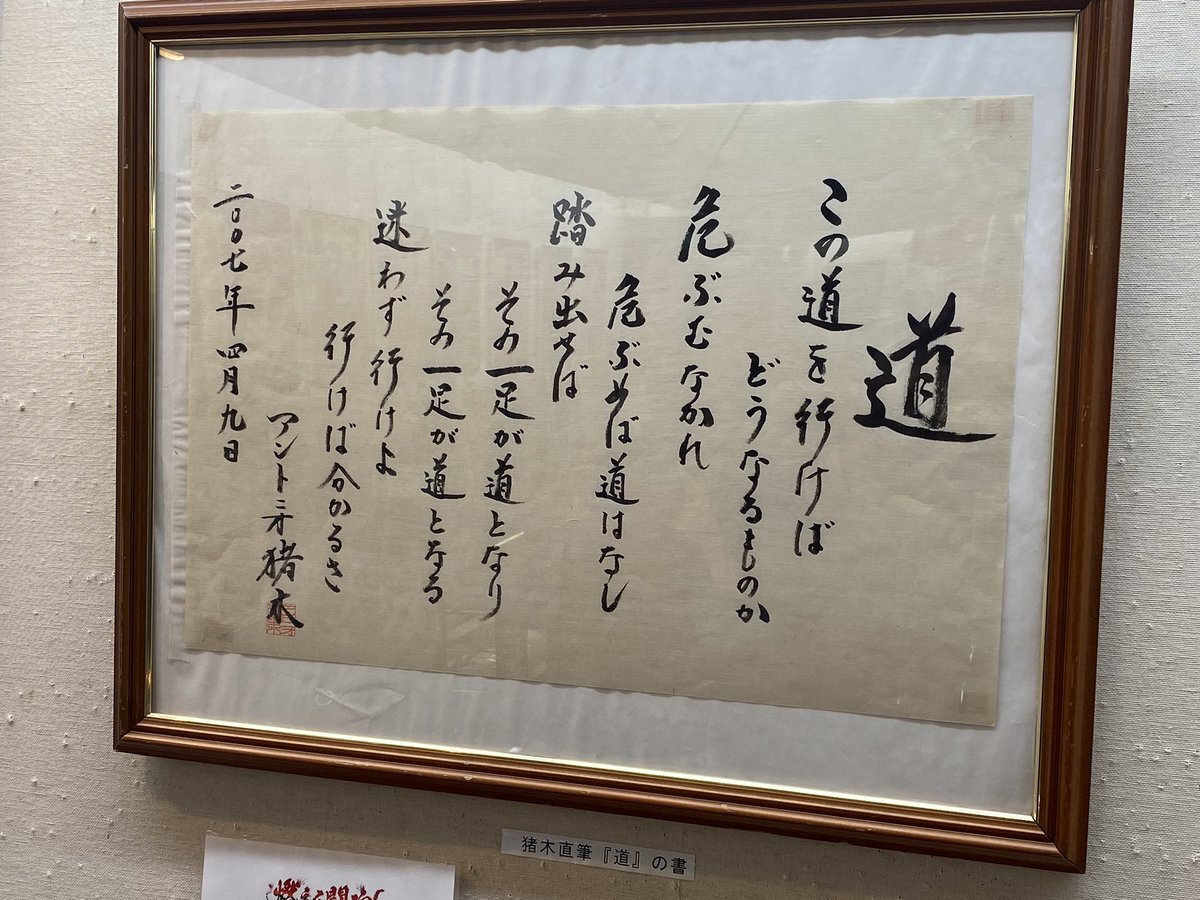 道
この道を行けば
どうなるものか
危ぶむなかれ
危ぶめば道はなし
踏み出せば
その一足が道となり
その一足が道となる
迷わず行けよ
行けば分かるさ
アントニオ猪木
二〇〇七年四月九日
猪木直筆『道』の書